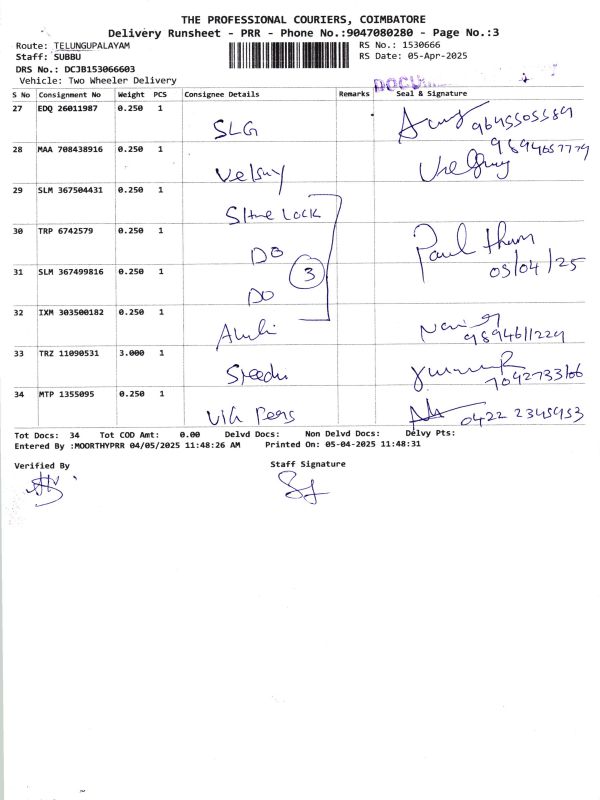 THE PROFESSIONAL COURIERS, COIMBATORE
Delivery Runsheet - PRR - Phone No.:9047080280 - Page No.:3
Route: TELUNGUPALAYAM
RS No.: 1530666
Staff: SUBBU
RS Date: 05-Apr-2025
DRS No.: DCJB153066603
Vehicle: Two Wheeler Delivery
S No Consignment No Weight PCS Consignee Details Remarks Seal & Signature
27 EDQ 26011987 0.250 1 SLG
28 MAA 708438916 0.250 1
29 SLM 367504431 0.250 1
30 TRP 6742579 0.250 1 DO
3
05/04/25
31 SLM 367499816 0.250 1 DO
32 IXM 303500182 0.250 1
33 TRZ 11090531 3.000 1
34 MTP 1355095 0.250 1 0422 2345953
Tot Docs: 34 Tot COD Amt: 0.00 Delvd Docs: Non Delvd Docs: Delvy Pts:
Entered By :MOORTHYPRR 04/05/2025 11:48:26 AM Printed On: 05-04-2025 11:48:31
Verified By Staff Signature